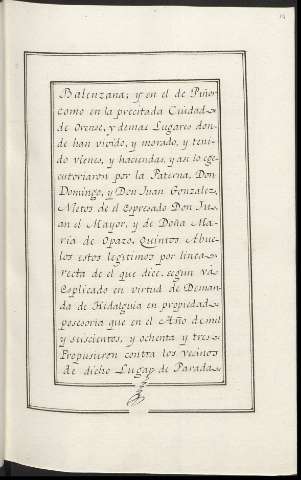 Balenzana; y en el de Piñor
como en la precitada Ciudad
de Orense, y demas Lugares don-
de han vivido, y morado, y teni-
do vienes, y haciendas, y asi lo ege-
cutoriaron por la Paterna, Don
Domingo, y Don Juan Gonzalez,
Nietos de el Espresado Don Ju-
an el Mayor, y de Doña Ma-
ria de Opazo, Quintos Abue-
los estos legitimos por linea
recta de el que dice, segun va
Esplicado en virtud de Deman-
da de Hidalguia en propiedad
posesoria que en el Año de mil
y seiscientos, y ochenta y tres
Propusieron contra los vecinos
de dicho Lugar de Parada